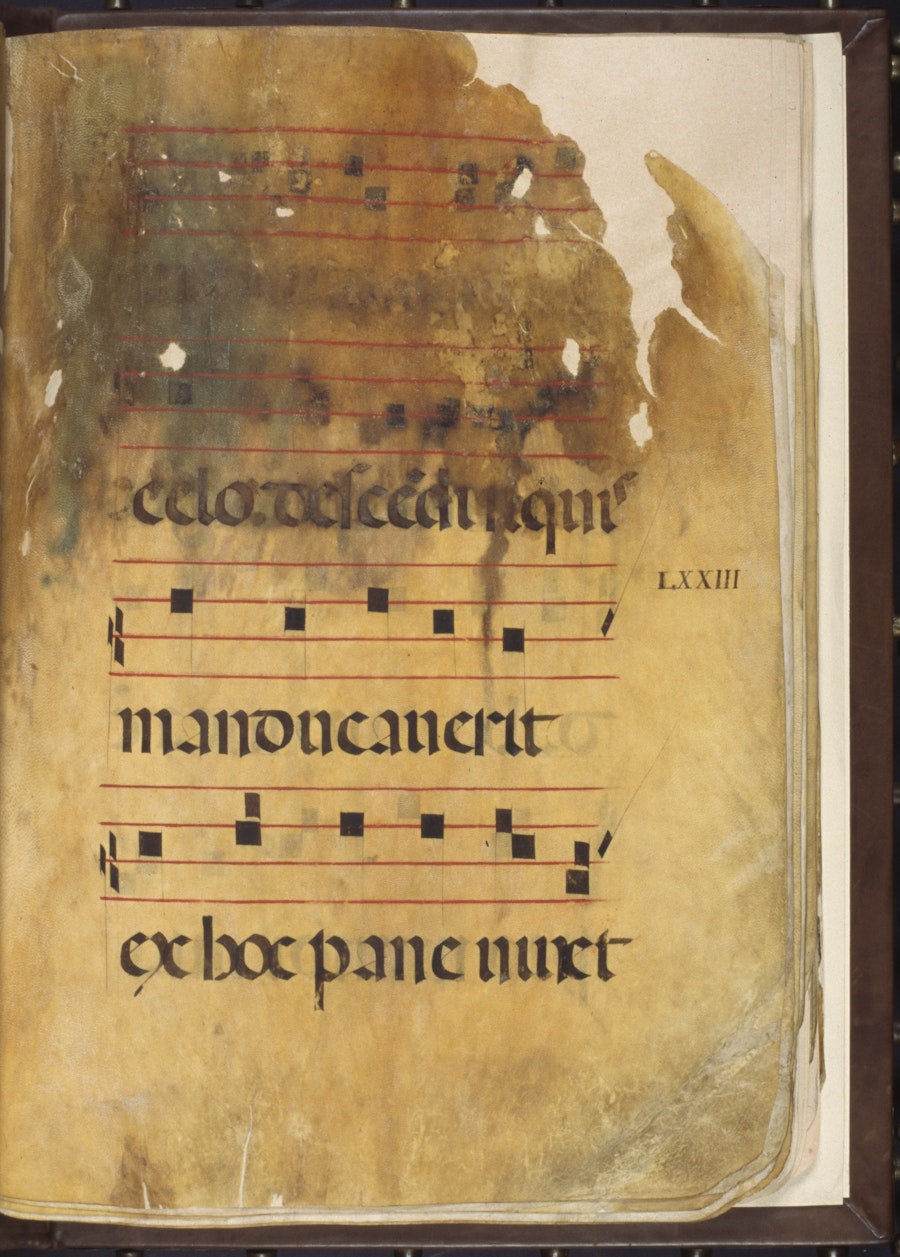 celo. descēdi. siquis
LXXIII
manducauerit
ex hoc pane uiuet